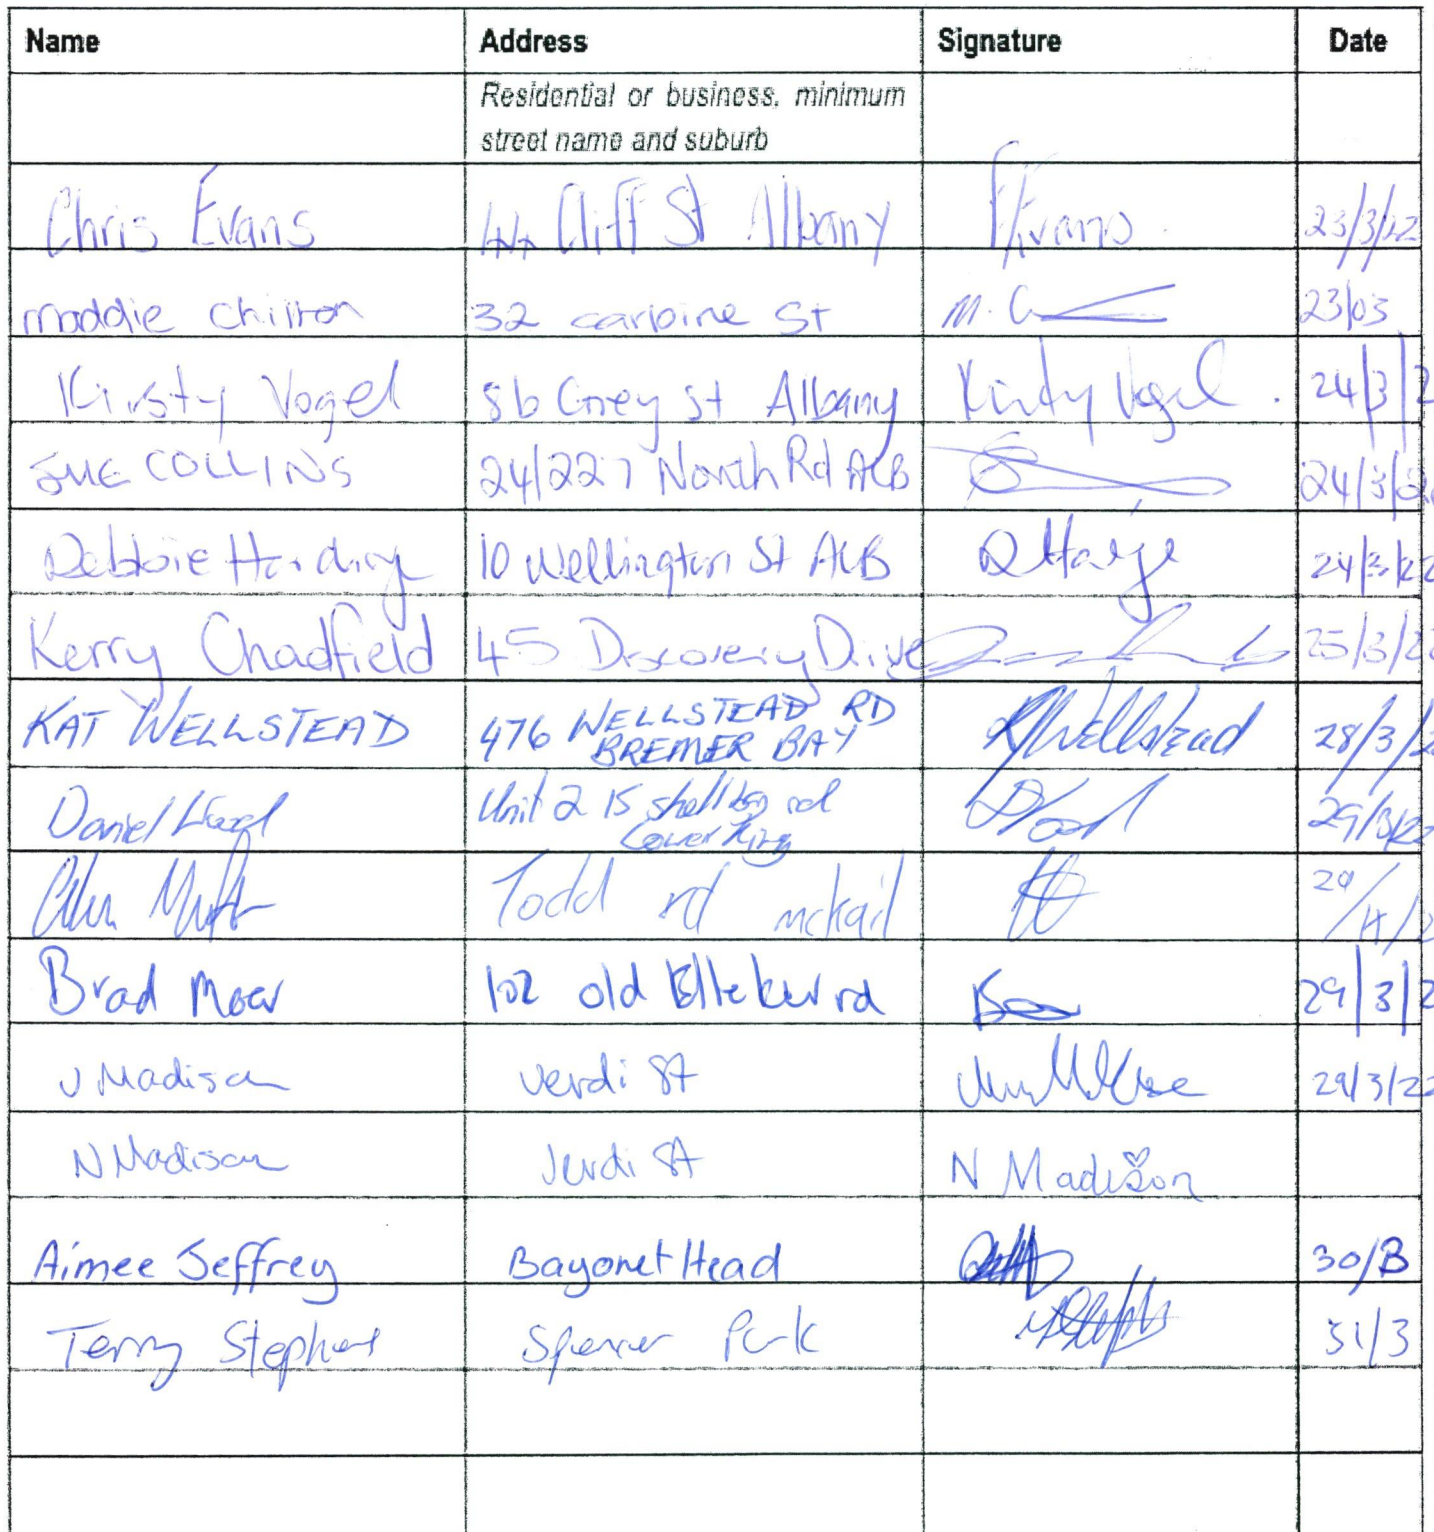 Name Address Signature Date
Residential or business, minimum
street name and suburb
Chris Evans 44 Cliff St Albany Evans 23/3/22
maddie chilton 32 carbine St M.C 23/03
Kirsty Vogel 8b Grey st Albany Kirsty Vogel 24/3/2
SUE COLLINS 24/227 North Rd ALB 24/3/
Debbie Harding 10 Wellington St ALB 24/3/22
Kerry Chadfield 45 Discovery Drive 25/3/22
KAT WELLSTEAD 476 WELLSTEAD RD
BREMER BAY KWellstead 28/3/2
Daniel Unit 2 15 shell bay rd
Lower King 29/3/22
Todd rd mckail
Brad 102 old Elleker rd 29/3/2
J Madison Verdi St 29/3/22
N Madison Verdi St N Madison
Aimee Jeffrey Bayonet Head 30/3
Terry Stephens Spencer Park 31/3